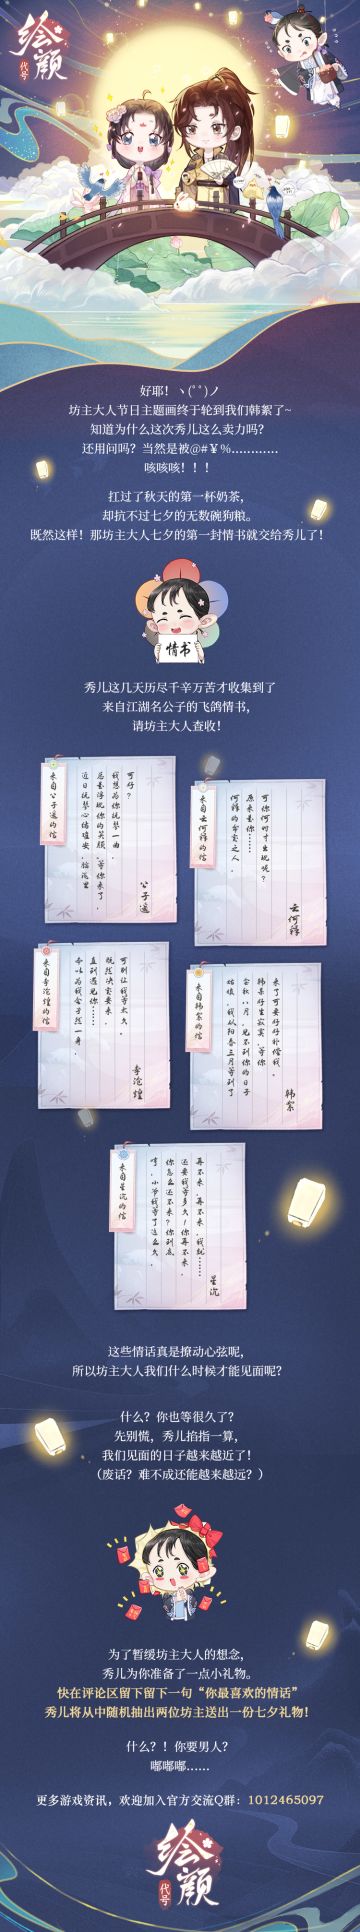 绘颜
代号
好耶！ヽ(°°)ノ
坊主大人节日主题画终于轮到我们韩絮了~
知道为什么这次秀儿这么卖力吗？
还用问吗？当然是被@#￥%…………
咳咳咳！！！
扛过了秋天的第一杯奶茶，
却抗不过七夕的无数碗狗粮。
既然这样！那坊主大人七夕的第一封情书就交给秀儿了！
情书
秀儿这几天历尽千辛万苦才收集到了
来自江湖名公子的飞鸽情书，
请坊主大人查收！
来自公子遥的信
近日抚琴心绪难安，脑海里
总是浮现你的笑颜，等你来了，
我想为你抚琴一曲，
可好？
公子遥
来自云何释的信
何释的命定之人，
原来是你……
可你何时才出现呢？
云何释
来自李沱煌的信
今以为我会孑然一身，
直到遇见你……
既然决定要来，
可别让我等太久。
李沱煌
来自韩絮的信
姑娘，我从阳春三月等到了
金秋八月，见不到你的日子
韩某好生寂寞，等你
来了可要好好补偿我。
韩絮
来自星沉的信
哼，小爷我等了这么久，
你怎么还不来？你到底
还要我等多久！你再不来，
再不来，再不来，我就……
星沉
这些情话真是撩动心弦呢，
所以坊主大人我们什么时候才能见面呢？
什么？你也等很久了？
先别慌，秀儿掐指一算，
我们见面的日子越来越近了！
（废话？难不成还能越来越远？）
为了暂缓坊主大人的想念，
秀儿为你准备了一点小礼物。
快在评论区留下留下一句“你最喜欢的情话”
秀儿将从中随机抽出两位坊主送出一份七夕礼物！
什么？！你要男人？
嘟嘟嘟……
更多游戏资讯，欢迎加入官方交流Q群：1012465097
绘颜
代号